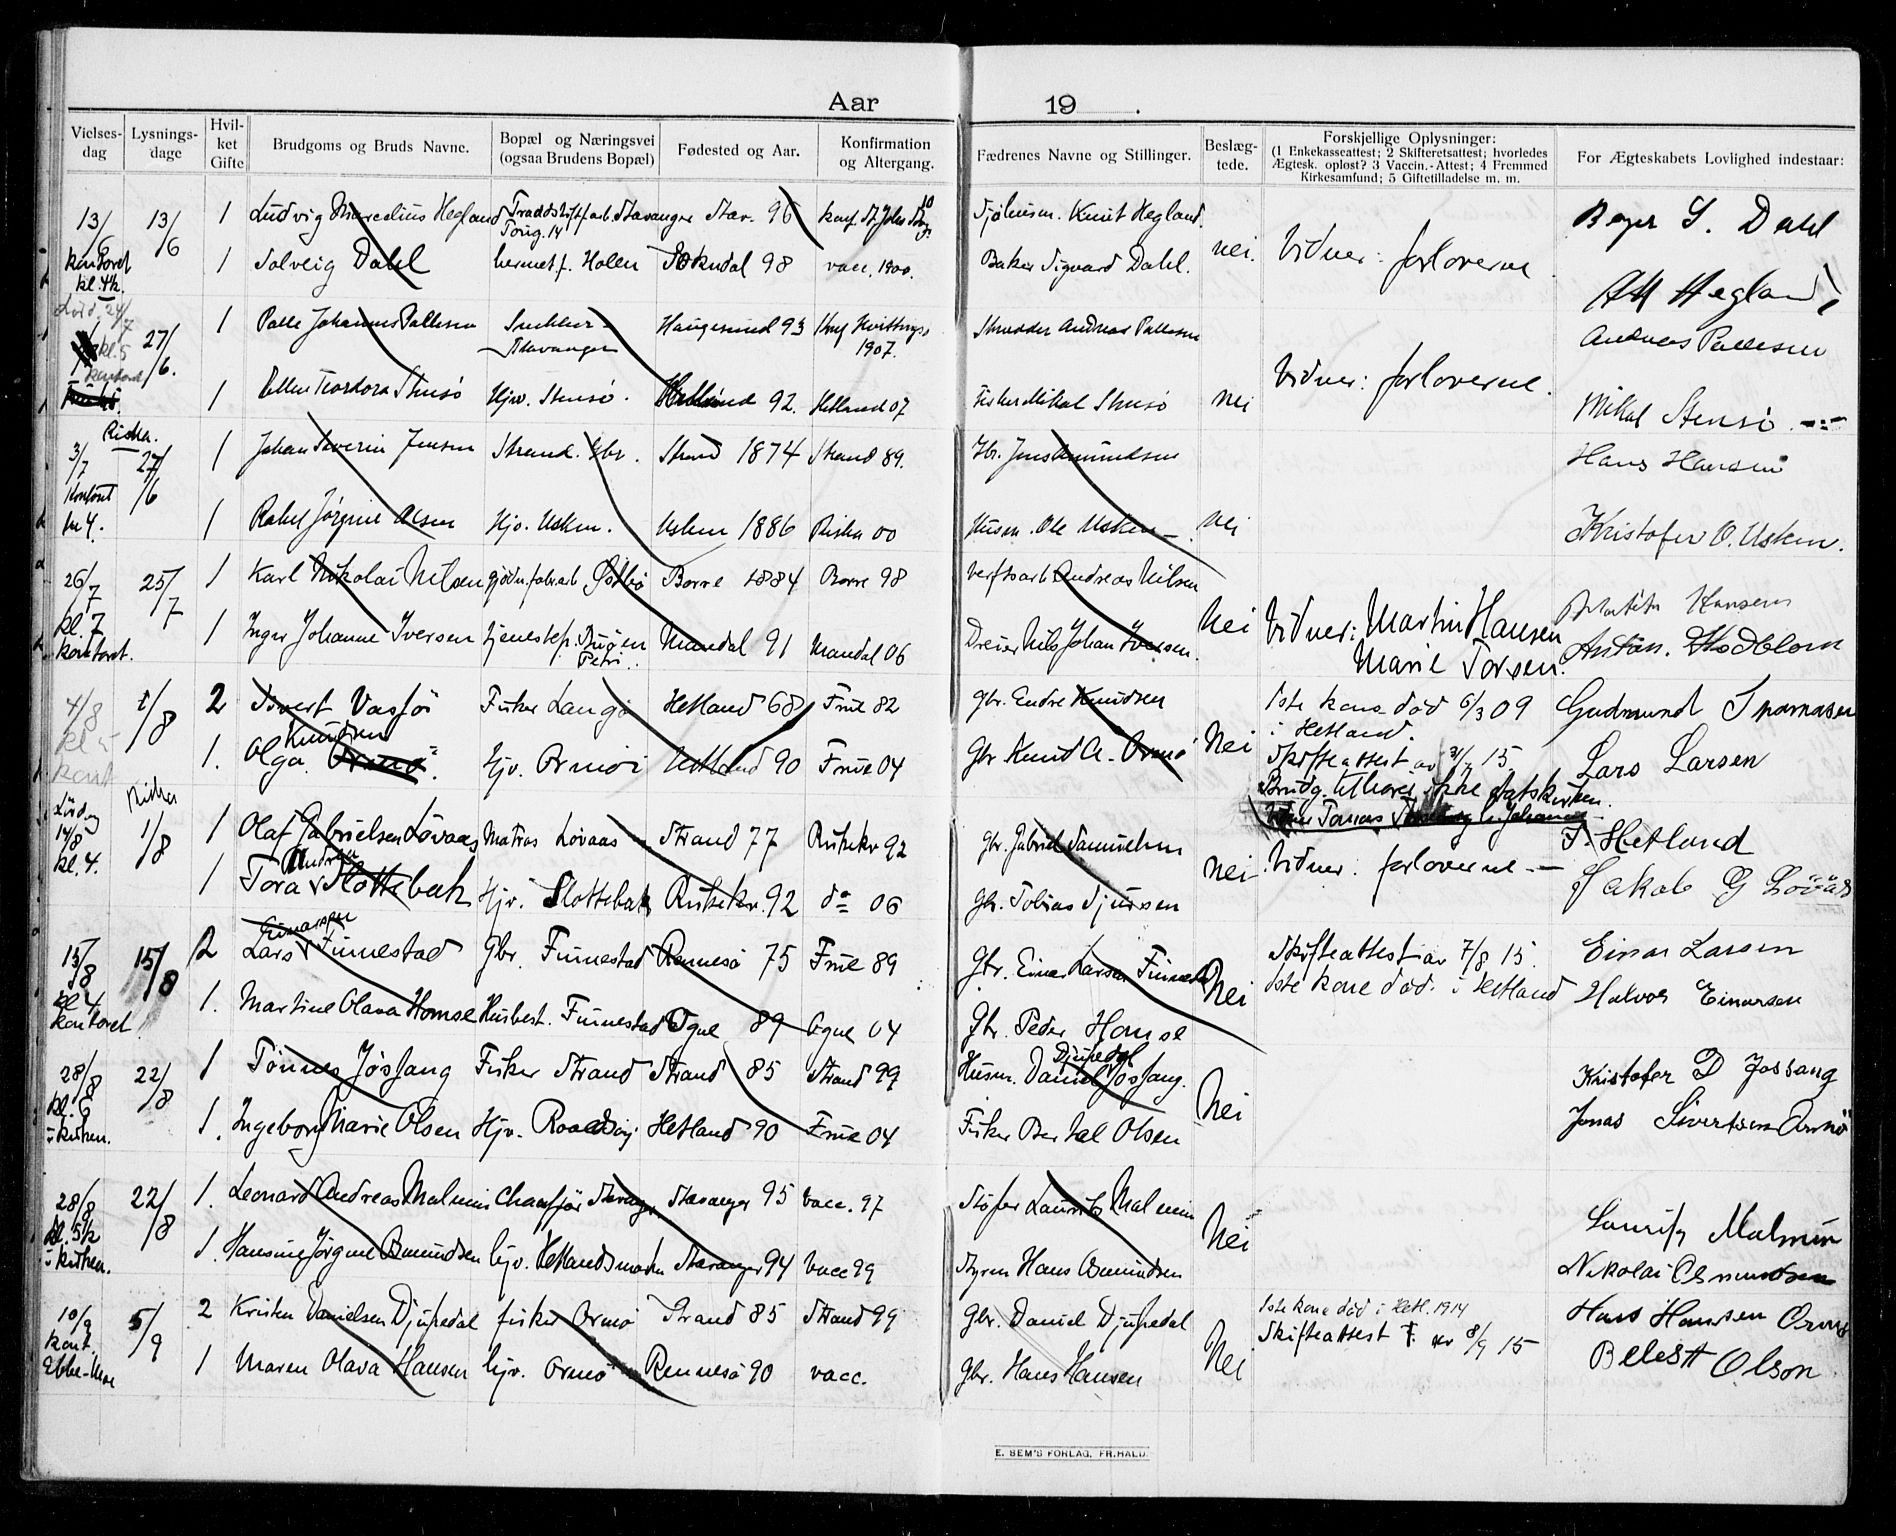 Aar 19 .
Vielses-dag
Lysnings-dage
Hvil-ket Gifte
Brudgoms og Bruds Navne.
Bopæl og Næringsvei (ogsaa Brudens Bopæl)
Fødested og Aar.
Konfirmation og Altergang.
Fædrenes Navne og Stillinger.
Beslæg-tede.
Forskjellige Oplysninger:
(1 Enkekasseattest; 2 Skifteretsattest; hvorledes
Ægtesk. opløst? 3 Vaccin.-Attest; 4 Fremmed
Kirkesamfund; 5 Giftetilladelse m. m.
For Ægteskabets Lovlighed indestaar:
13/6 13/6 1 Ludvig Marcelius Hegland Stavanger Stav. 96 konf. St. Johs Knut Hegland.
kontoret 1 Solveig Dahl hermet.f. Holen Sokndal 98 vacc. 1900. Baker Sigvard Dahl. nei. Vidner: forloverne
S. Dahl
Hegland
24/7 kl. 5 kontoret 27/6. 1 Palle Johannes Pallesen Stavanger Haugesund 93 1907. Skrædder Andreas Pallesen
1 Ellen Teodora Stensø Hjv. Stensø. 92. Hetland 07 Fisker Mikal Stensø nei Vidner: forloverne.
Andreas Pallesen
Mikal Stensø
Riska.
3/7 27/6 1 Johan Severin Jensen Strand. Gbr. Strand 1874 Strand 89. Gbr. Jens Amundsen
Kontoret kl 4. 1 Rakel Jørgine Olsen Hjv. Usken. Usken 1886 Riska 00 Husm. Ole Usken nei
Hans Hansen
Kristofer O. Usken.
26/7 25/7 1 Karl Nikolai Nilsen Borre 1884 Borre 98 Verftsarb Andreas Nilsen
kl. 7 kontoret. 1 Inger Johanne Iversen tjenestep. Mandal 91 Mandal 06 Dreier Nils Johan Iversen. Nei Vidner: Martin Hansen
Marie Torsen.
Hansen
Anton.
4/8 1/8 2 Sivert Vasjø Fisker Langø Hetland 68 Frue 82 Gbr. Endre Knudsen 1ste kone død 6/3 09
i Hetland.
Knudsen
1. Olga Ormø. Hjv. Ormøi Hetland 90 Frue 04 Gbr Knud A. Ormø Nei Skifteattest av 31/7 15.
Brudg. tilhører ikke statskirken.
Gudmund Tnomasen
Lars Larsen
Riska
Lørdag 14/8 kl. 4. 1/8 1 Olaf Gabrielsen Løvaas Matros Løvaas Strand 77 92 Gbr. Gabriel Samuelsen
1 Tora Slottebak Hjv. Slottebak 92 do 06 Gbr. Tobias Sjursen nei Vidner: forloverne
T. Hetland
Jakob G Løvaas
Einarsen
15/8 15/8 2 Lars Finnestad Gbr. Finnestad Rennesø 75 Frue 89 Gbr. Einar Larsen Finnestad Skifteattest av 7/8 15.
kl 4 kontoret 1. Martine Olava Homse Husbest. Finnestad Ogne 89 Ogne 04 Gbr. Peder Homse Nei 1ste kone død. i Hetland
Einar Larsen
Halvor Einarsen
28/8 22/8 1 Tønnes Jøssang Fisker Strand Strand 85 Strand 99 Husm. Daniel Jøssang. Djupedal
kl. 6 i kirken. 1. Ingeborg Marie Olsen Hjv. Hetland 90 Frue 04 Fisker Bertel Olsen Nei
Kristofer D Jossang
Jonas Sivertsen Ormø
28/8 22/8 1. Leonard Andreas Malmin Chauffør Stavanger Stavanger 95 Vacc. 97 Støper Laurits Malmin
kl. 5½ i kirken. 1. Hansine Jørgine Osmundsen hjv. Hetlandsmarken Stavanger 94 Vacc 99 Styrm Hans Osmundsen Nei
Laurits Malmin
Nikolai Osmundsen
10/9 5/9 2 Kristen Danielsen Djupedal fisker Ormø Strand 85 Strand 99 Gbr. Daniel Djupedal 1ste kone død i Hetl. 1914
kont. 1 Maren Olava Hansen hjv. Ormø Rennesø 90 vacc. Gbr. Hans Hansen Nei Skifteattest av 8/9 15
Hans Hansen Ormø
Olson
E. SEM'S FORLAG, FR.HALD.